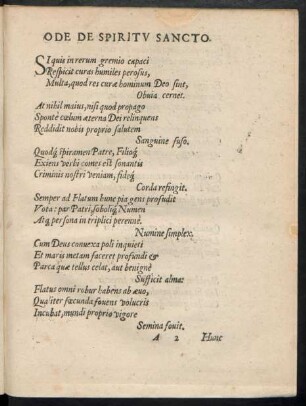 ODE DE SPIRITV SANCTO.
SI quis in rerum gremio capaci
Respicit curas humiles perosus,
Multa, quod res curæ hominum Deo sint,
Obuia cernet.
At nihil maius, nisi quod propago
Sponte cœlum æterna Dei relinquens
Reddidit nobis proprio salutem
Sanguine fuso.
Quodq́; spiramen Patre, Filioq́;
Exiens verbi comes est sonantis
Criminis nostri veniam, fideq́;
Corda refingit.
Semper ad Flatum hunc pia gens profudit
Vota: par Patri, soboliq́; Numen
Atq́; persona in triplici perennis
Numine simplex.
Cum Deus conuexa poli inquieti
Et maris metam faceret profundi &
Parca quæ tellus celat, aut benignè
Sufficit alma:
Flatus omni robur habens ab æuo,
Qualiter fœcunda fouens volucris
Incubat, mundi proprio vigore
Semina fouit.
A 2 Hunc